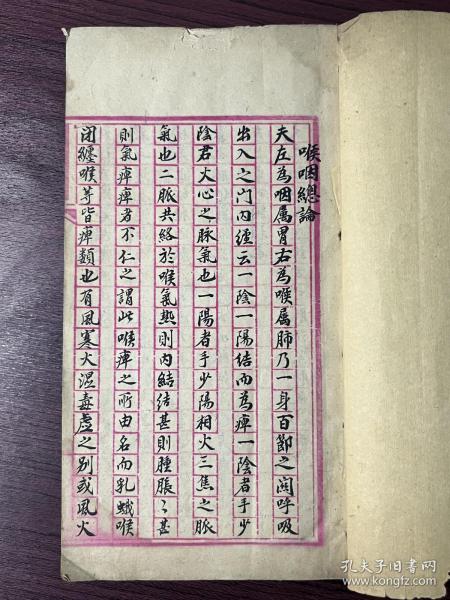 喉咽總論
夫左為咽属胃右為喉属肺乃一身百節之関呼吸
出入之门内經云一陰一陽结而為痺一陰者手少
陰君火心之脉氣也一陽者手少陽相火三焦之脈
氣也二脈共絡於喉氣热則内結结甚則腫脹〻甚
則氣痺痺者不仁之謂此喉痺之所由名而乳蛾喉
闭纏喉等皆痺類也有風寒火湿毒虚之别或風火
孔夫子旧书网
kongfz.com